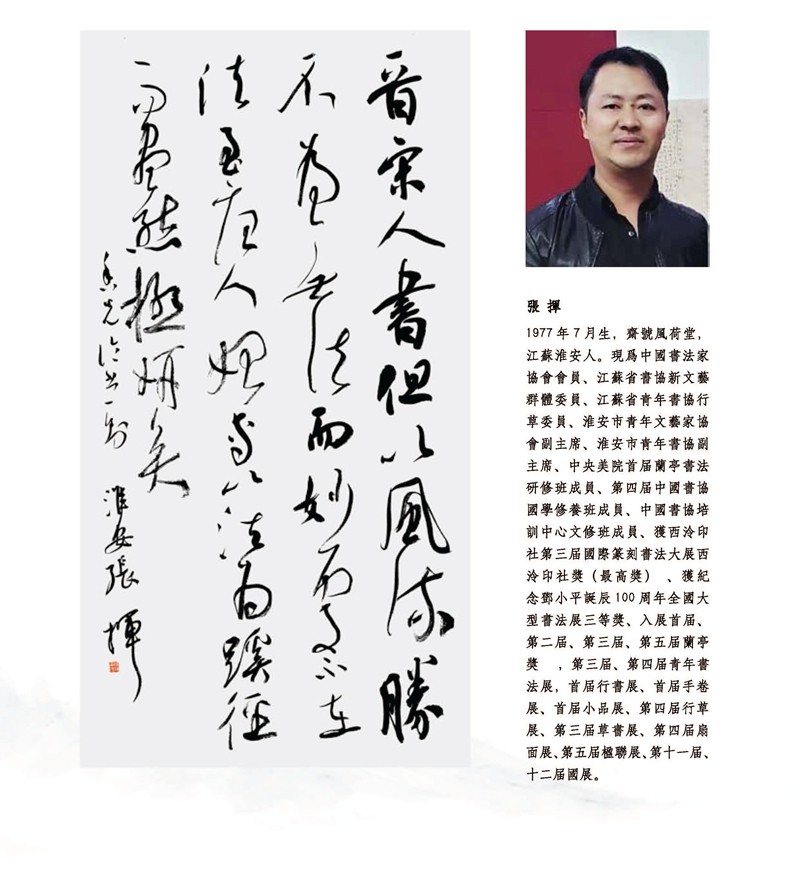 晋宋人書但以風流勝
不為無法而妙處不在
法至唐人始專以法為蹊徑
而盡態極妍矣
香光論書一則 淮安張揮
張揮
1977年7月生，齋號風荷堂，
江蘇淮安人。現爲中國書法家
協會會員、江蘇省書協新文藝
群體委員、江蘇省青年書協行
草委員、淮安市青年文藝家協
會副主席、淮安市青年書協副
主席、中央美院首届蘭亭書法
研修班成員、第四届中國書協
國學修養班成員、中國書協培
訓中心文修班成員、獲西泠印
社第三届國際篆刻書法大展西
泠印社獎（最高獎）、獲紀
念鄧小平誕辰100周年全國大
型書法展三等獎、入展首届、
第二届、第三届、第五届蘭亭
獎 ，第三届、第四届青年書
法展，首届行書展、首届手卷
展、首届小品展、第四届行草
展、第三届草書展、第四届扇
面展、第五届楹聯展、第十一届、
十二届國展。